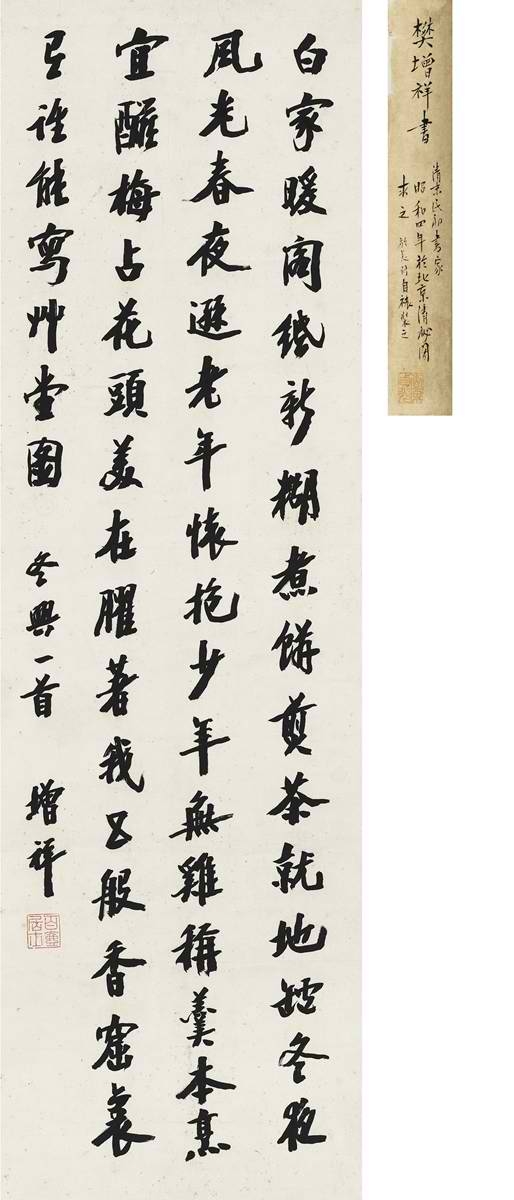 白家暖閣紙新糊煮餅煎茶就地鑪冬夜
風光春夜遜老年懷抱少年無雞稱羹本烹
宜釅梅占花頭美在臞著我五般香窟裏
誰能寫艸堂圖 冬興一首 增祥
樊增祥書
清末民初書家
昭和四年於北京清秘閣
求之 自裝之